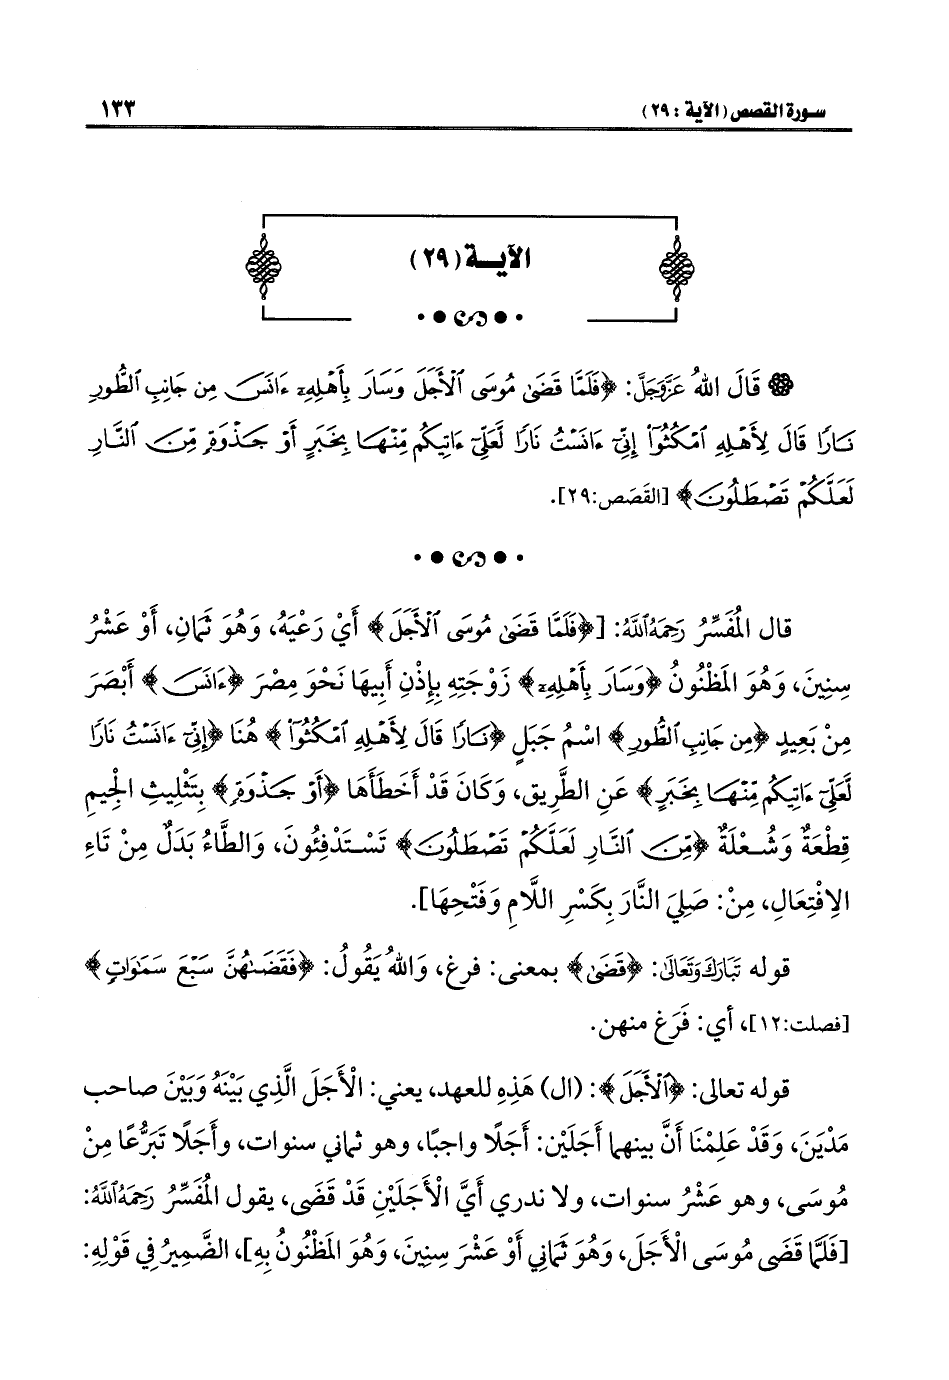 سورة القصص (الآية : ٢٩)
١٣٣
الآيــة (٢٩)
قَالَ اللهُ عَزَّوَجَلَّ: ﴿فَلَمَّا قَضَىٰ مُوسَى ٱلْأَجَلَ وَسَارَ بِأَهْلِهِۦٓ ءَانَسَ مِن جَانِبِ ٱلطُّورِ
نَارًا قَالَ لِأَهْلِهِ ٱمْكُثُوٓا۟ إِنِّىٓ ءَانَسْتُ نَارًا لَّعَلِّىٓ ءَاتِيكُم مِّنْهَا بِخَبَرٍ أَوْ جَذْوَةٍ مِّنَ ٱلنَّارِ
لَعَلَّكُمْ تَصْطَلُونَ﴾ [القَصَص:٢٩].
قال المُفَسِّرُ رَحِمَهُ اللَّهُ: [﴿فَلَمَّا قَضَىٰ مُوسَى ٱلْأَجَلَ﴾ أَيْ رَعْيَهُ، وَهُوَ ثَمَانٍ، أَوْ عَشْرُ
سِنِينَ، وَهُوَ المَظْنُونُ ﴿وَسَارَ بِأَهْلِهِۦٓ﴾ زَوْجَتِهِ بِإِذْنِ أَبِيهَا نَحْوَ مِصْرَ ﴿ءَانَسَ﴾ أَبْصَرَ
مِنْ بَعِيدٍ ﴿مِن جَانِبِ ٱلطُّورِ﴾ اسْمُ جَبَلٍ ﴿نَارًا قَالَ لِأَهْلِهِ ٱمْكُثُوٓا۟﴾ هُنَا ﴿إِنِّىٓ ءَانَسْتُ نَارًا
لَّعَلِّىٓ ءَاتِيكُم مِّنْهَا بِخَبَرٍ﴾ عَنِ الطَّرِيقِ، وَكَانَ قَدْ أَخَطَأَهَا ﴿أَوْ جَذْوَةٍ﴾ بِتَثْلِيثِ الْجِيمِ
قِطْعَةٌ وَشُعْلَةٌ ﴿مِّنَ ٱلنَّارِ لَعَلَّكُمْ تَصْطَلُونَ﴾ تَسْتَدْفِئُونَ، وَالطَّاءُ بَدَلٌ مِنْ تَاءِ
الِافْتِعَالِ، مِنْ: صَلِيَ النَّارَ بِكَسْرِ اللَّامِ وَفَتْحِهَا].
قوله تَبَارَكَ وَتَعَالَىٰ: ﴿قَضَىٰ﴾ بمعنى: فرغ، وَاللهُ يَقُولُ: ﴿فَقَضَىٰهُنَّ سَبْعَ سَمَٰوَاتٍ﴾
[فصلت:١٢]، أي: فَرَغ منهن.
قوله تعالى: ﴿ٱلْأَجَلَ﴾: (ال) هَذِهِ للعهد، يعني: الْأَجَلَ الَّذِي بَيْنَهُ وَبَيْنَ صاحب
مَدْيَنَ، وَقَدْ عَلِمْنَا أَنَّ بينهما أَجَلَيْن: أَجَلًا واجبًا، وهو ثماني سنوات، وأَجَلًا تَبَرُّعًا مِنْ
مُوسَى، وهو عَشْرُ سنوات، ولا ندري أَيَّ الْأَجَلَيْنِ قَدْ قَضَى، يقول المُفَسِّرُ رَحِمَهُ اللَّهُ:
[فَلَمَّا قَضَى مُوسَى الْأَجَلَ، وَهُوَ ثَمَانِي أَوْ عَشْرَ سِنِينَ، وَهُوَ المَظْنُونُ بِهِ]، الضَّمِيرُ فِي قَوْلِهِ: